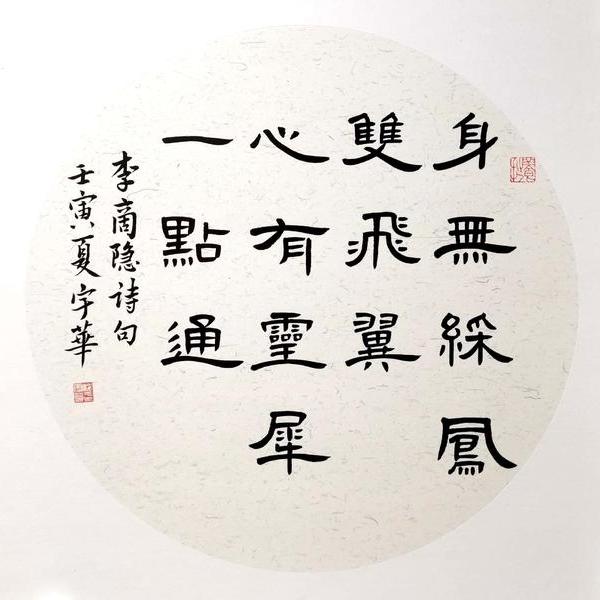 身無綵鳳
雙飛翼
心有靈犀
一點通
李商隐诗句
壬寅夏宇華